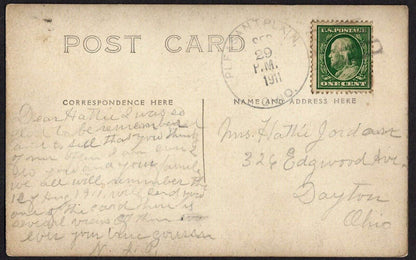 POST CARD
PLEASANT RUN
SEP
29
P.M.
1911
O.
U.S. POSTAGE
ONE CENT
CORRESPONDENCE HERE
NAME AND ADDRESS HERE
Dear Hattie I was so
glad to be remembered
and to tell that you think
of me
you and your family
we all will remember the
12 of Aug 1911, will send you
one of the card here is
several views of them
ever your
Mrs. Hattie Jordan
326 Edgwood Ave.
Dayton
Ohio